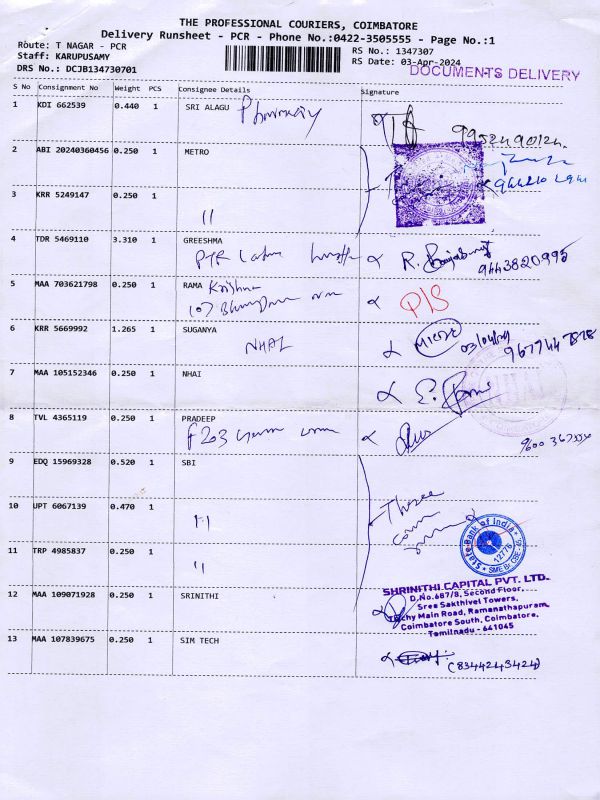 THE PROFESSIONAL COURIERS, COIMBATORE
Delivery Runsheet - PCR - Phone No.:0422-3505555 - Page No.:1
Route: T NAGAR - PCR
Staff: KARUPUSAMY
DRS No.: DCJB134730701
RS No.: 1347307
RS Date: 03-Apr-2024
DOCUMENTS DELIVERY
S No Consignment No Weight PCS Consignee Details Signature
1 KDI 662539 0.440 1 SRI ALAGU Pharmacy
9952490124
2 ABI 20240360456 0.250 1 METRO
3 KRR 5249147 0.250 1
"
4 TDR 5469110 3.310 1 GREESHMA
R. 9443820995
5 MAA 703621798 0.250 1 RAMA Krishna
107
P/S
6 KRR 5669992 1.265 1 SUGANYA
NHAI
03/04/24
7 MAA 105152346 0.250 1 NHAI
8 TVL 4365119 0.250 1 PRADEEP
F 203
9 EDQ 15969328 0.520 1 SBI
Three
10 UPT 6067139 0.470 1
"
State Bank of India
12776
11 TRP 4985837 0.250 1
"
12 MAA 109071928 0.250 1 SRINITHI
SHRINITHI CAPITAL PVT. LTD.
D.No.687/8, Second Floor,
Sree Sakthivel Towers,
Trichy Main Road, Ramanathapuram,
Coimbatore South, Coimbatore,
Tamilnadu - 641045
13 MAA 107839675 0.250 1 SIM TECH
(8344243424)